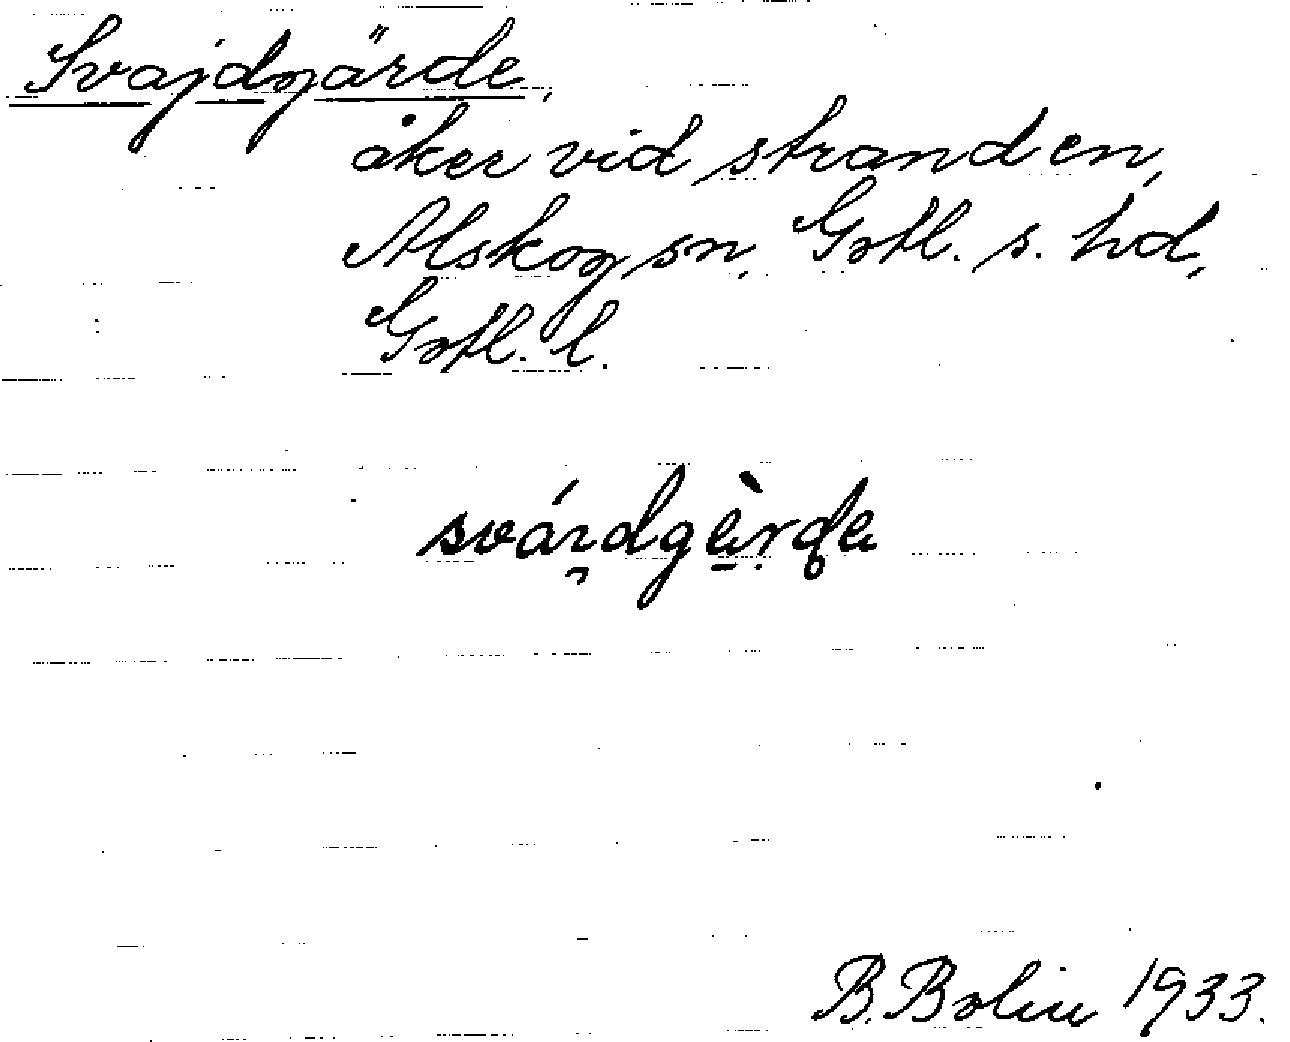 Svajdgärde,
åker vid stranden,
Alskog sn, Gotl. s. hd,
Gotl. l.
B. Bolin 1933.